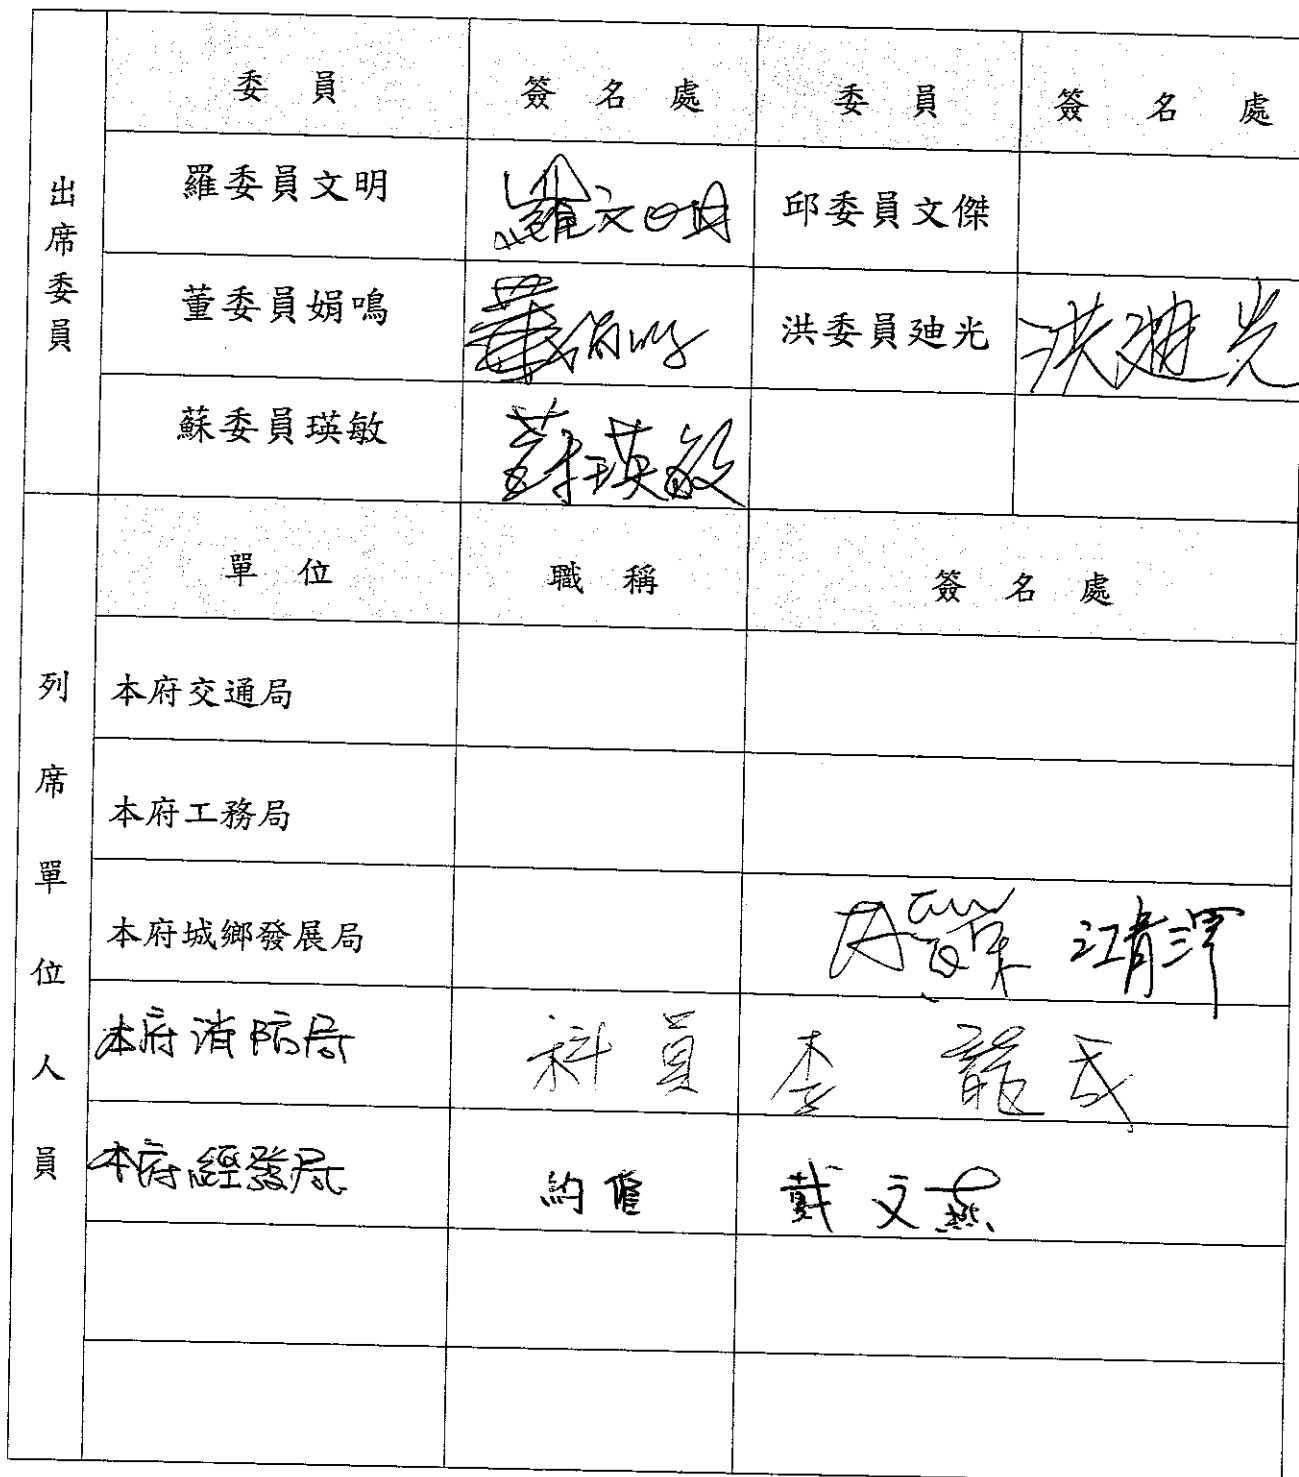 出席委員
委員 簽名處 委員 簽名處
羅委員文明 羅文明 邱委員文傑
董委員娟鳴 董娟鳴 洪委員廸光 洪廸光
蘇委員瑛敏 蘇瑛敏
列席單位人員
單位 職稱 簽名處
本府交通局
本府工務局
本府城鄉發展局 江青澤
本府消防局 科員 李龍
本府經發局 約僱 戴文燕